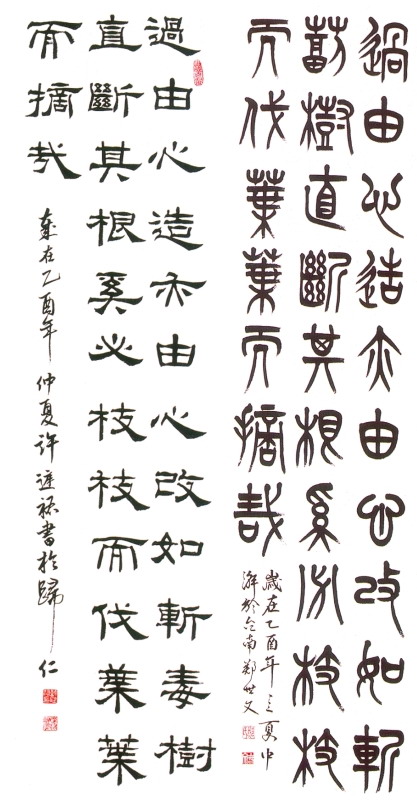 過由心造亦由心改如斬
毒樹直斷其根奚必枝枝
而伐葉葉而摘哉
歲在乙酉年之夏中
澣於台南鄭世文
過由心造亦由心改如斬毒樹
直斷其根奚必枝枝而伐葉葉
而摘哉
歲在乙酉年仲夏許書於歸仁